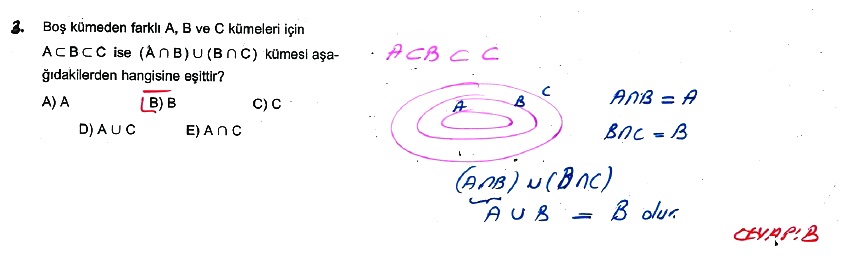 3. Boş kümeden farklı A, B ve C kümeleri için
A ⊂ B ⊂ C ise (A ∩ B) ∪ (B ∩ C) kümesi aşa-
ğıdakilerden hangisine eşittir?
A) A B) B C) C
D) A ∪ C E) A ∩ C
A ⊂ B ⊂ C
A B C
A∩B = A
B∩C = B
(A∩B) ∪ (B∩C)
A ∪ B = B olur.
CEVAP: B